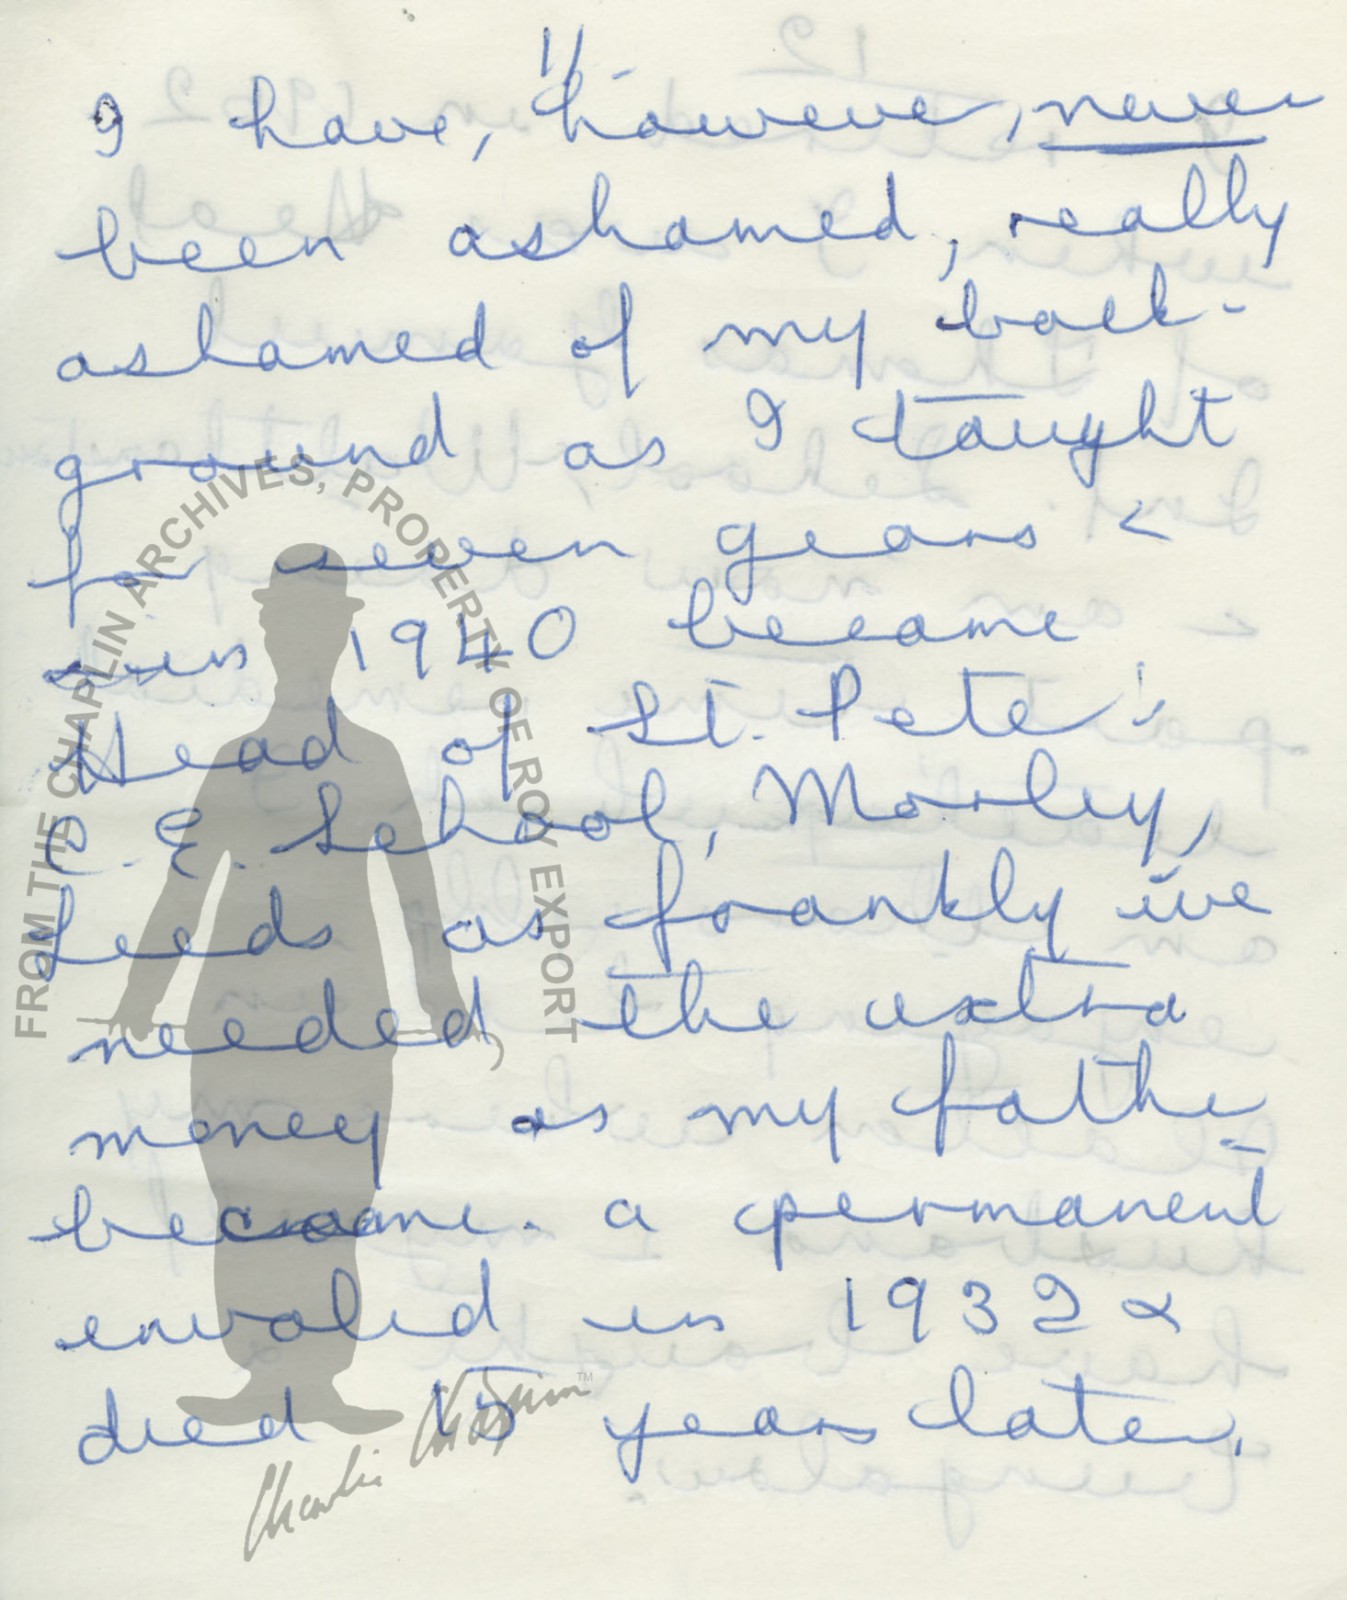 11
I have, however, never
been ashamed, really
ashamed of my back-
ground as I taught
for seven years &
in 1940 became
Head of St. Peter's
C.E. School, Morley,
Leeds as frankly we
needed, the extra
money as my father
became a permanent
invalid in 1932 &
died 15 years later.
FROM THE CHAPLIN ARCHIVES, PROPERTY OF ROY EXPORT
Charlie Chaplin™